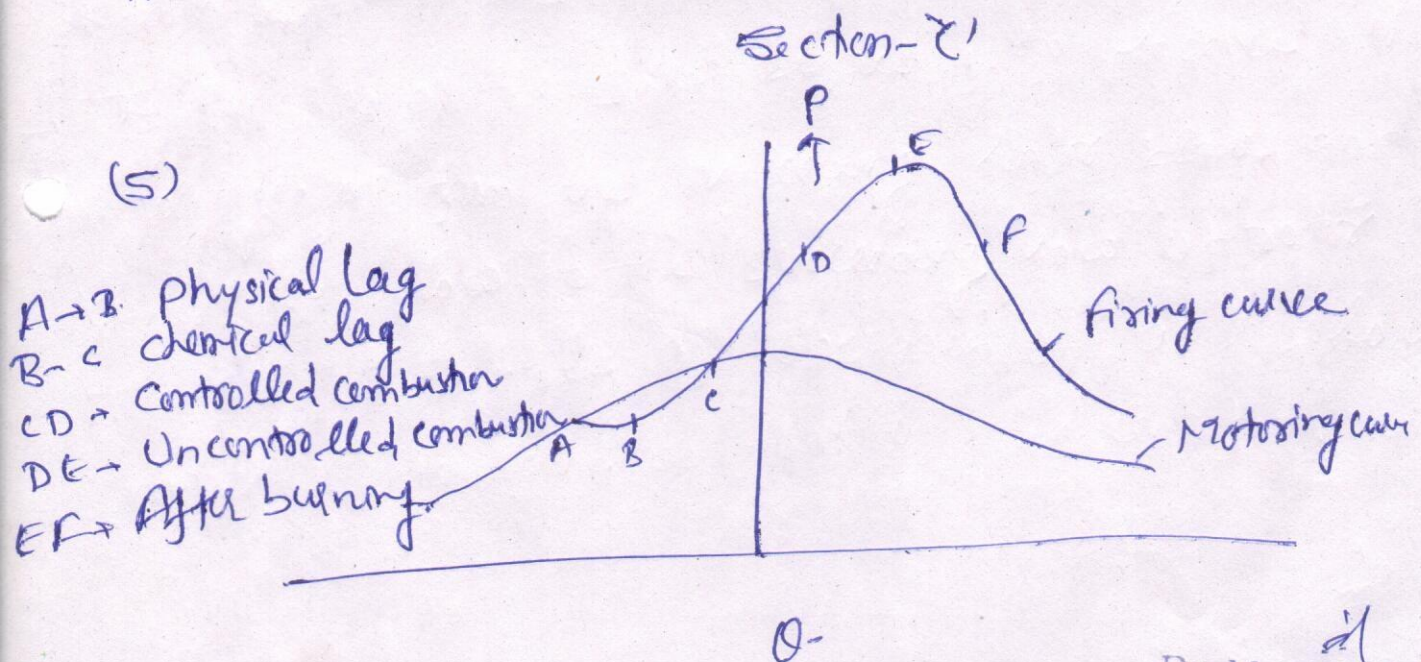 Section-'C'
P
↑
(5)
A→B. physical lag
B-C chemical lag
CD → Controlled combustion
DE → Uncontrolled combustion
EF → After burning
E
D
F
C
A
B
firing curve
Motoring curve
θ-